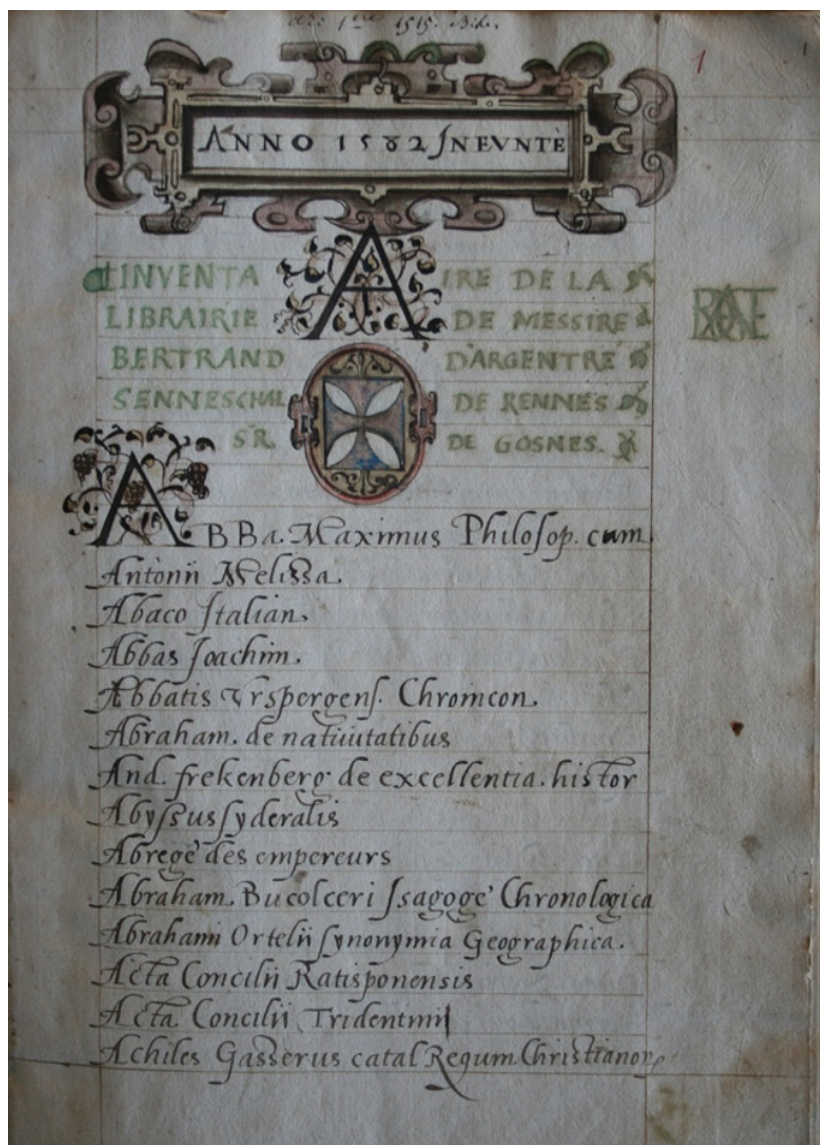 1515.
1
1
ANNO 1582 INEVNTE
LINVENTA A IRE DE LA
LIBRAIRIE DE MESSIRE
BERTRAND D'ARGENTRE
SENNESCHAL DE RENNES
SR. DE GOSNES.
ABBa. Maximus Philosop. cum
Antonii Melissa.
Abaco Italian.
Abbas Joachim.
Abbatis Vrspergens. Chronicon.
Abraham. de natiuitatibus
And. frekenberg de excellentia. histor
Abyssus syderalis
Abregé des empereurs
Abraham. Bucolceri Isagoge Chronologica
Abrahami Ortelii synonymia Geographica.
Acta Concilii Ratisponensis
Acta Concilii Tridentini
Achiles Gasserus catal Regum Christianor